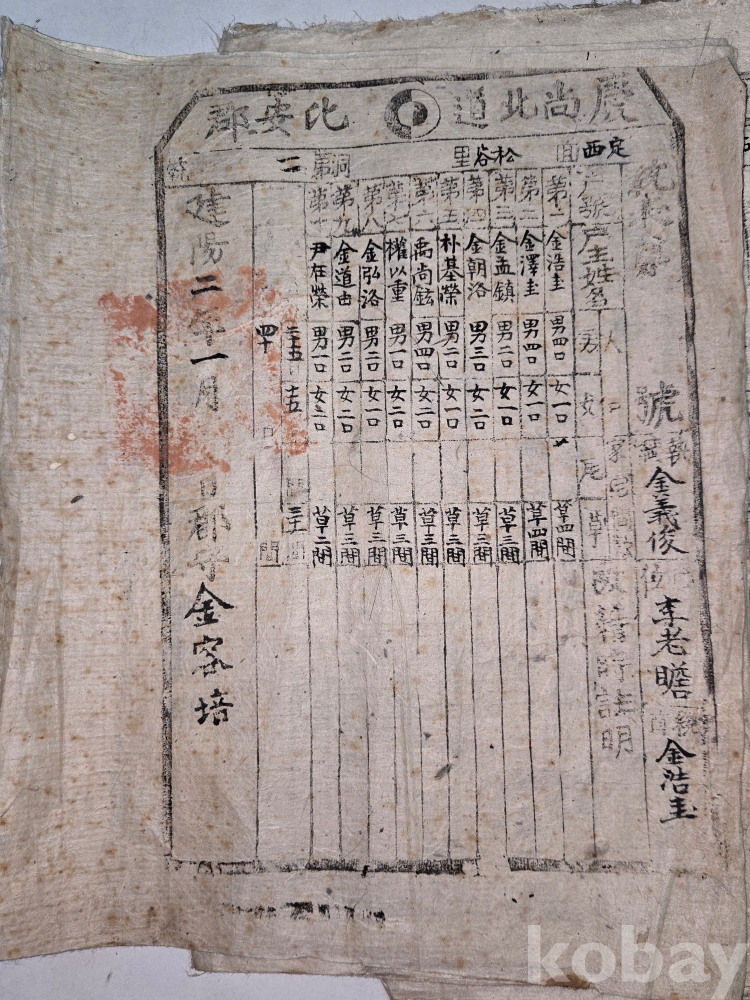 慶尚北道 比安郡
定西面 松谷里 第二洞
統表
號
執綱 金義俊
李老瞻
統首 金浩圭
戶號 戶主姓名 人口 男 女 家宅間數 瓦 草 改籍時註明
第一 金浩圭 男四口 女一口 草四間
第二 金澤圭 男四口 女一口 草四間
第三 金孟鎮 男二口 女一口 草三間
第四 金朝洛 男三口 女一口 草三間
第五 朴基榮 男二口 女一口 草三間
第六 禹尚鉉 男四口 女二口 草三間
第七 權以重 男一口 女二口 草三間
第八 金弘洛 男二口 女一口 草三間
第九 金道由 男二口 女二口 草三間
第十 尹在榮 男一口 女三口 草二間
二十五 十五 三十一間
四十 口 間
建陽二年一月 日郡守金容培
kobay